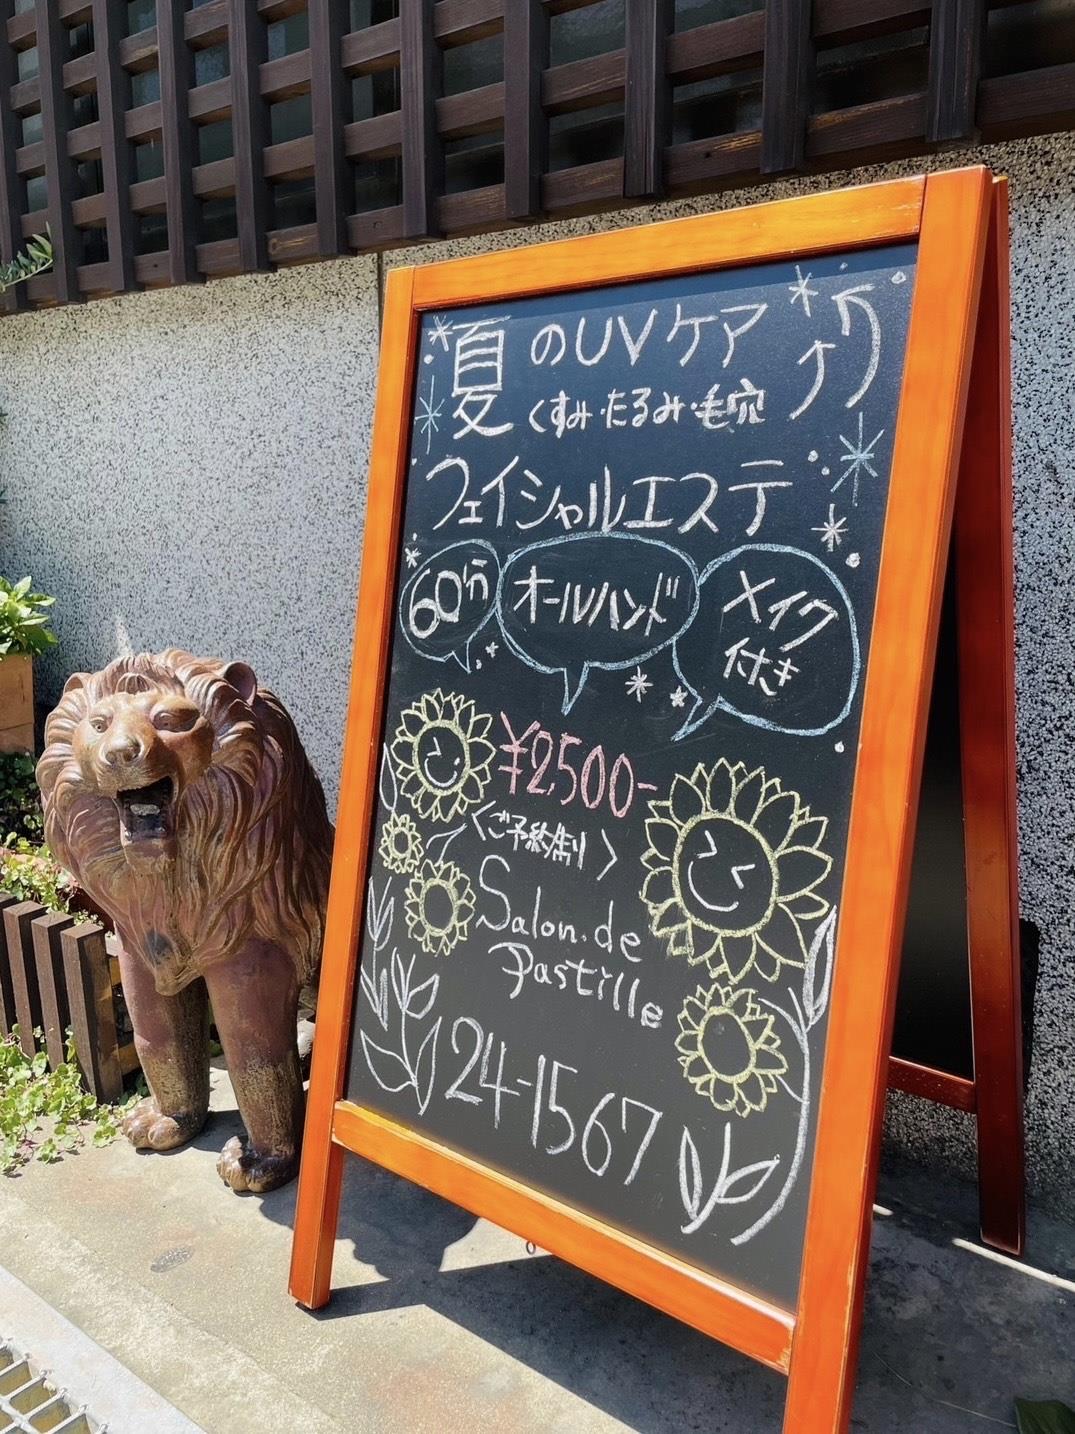 夏のUVケア
くすみ・たるみ・毛穴
フェイシャルエステ
60分
オールハンド
メイク
付き
¥2,500-
〈ご予約制〉
Salon.de
Pastille
24-1567